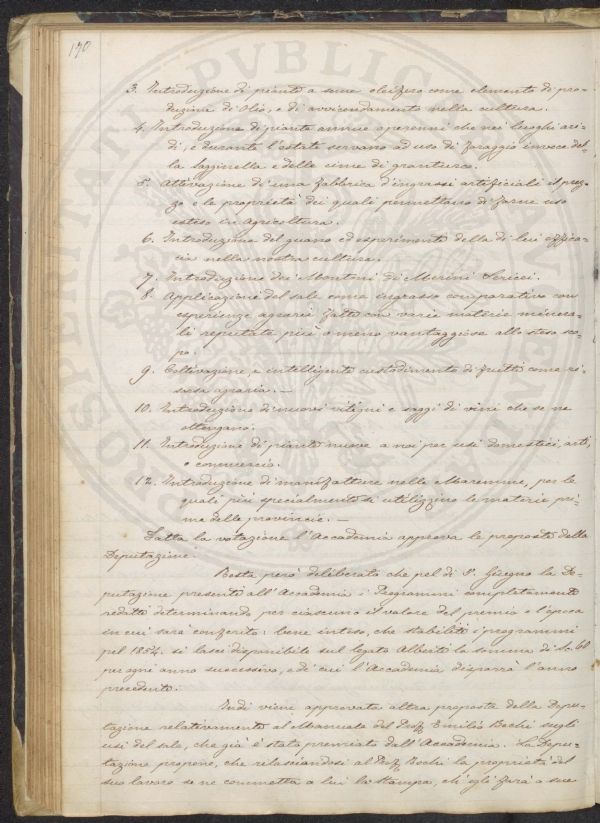 190
3. Introduzione di piante a seme oleifero come elemento di pro-
duzione di Olio, e di avvicendamento nella cultura.
4. Introduzione di piante annue o perenni che nei luoghi ari-
di, e durante l'estate servano ad uso di foraggio invece del-
la Sagginella e delle cime di granturco.
5. Attivazione di una fabbrica d'ingrassi artificiali il prez-
zo e la proprietà dei quali permettano di farne uso
esteso in Agricoltura.
6. Introduzione del guano ed esperimento della di lui effica-
cia nella nostra cultura.
7. Introduzione dei Montoni di Merini Sericei.
8. Applicazione del sale come ingrasso comparativo con
esperienze agrarie fatte con varie materie minera-
li reputate più o meno vantaggiose allo steso sco-
po.
9. Coltivazione, e intelligente custodimento di frutti come ri-
sorsa agraria. —
10. Introduzione di nuovi vitigni e saggi di vini che se ne
ottengano.
11. Introduzione di piante nuove a noi per usi domestici, arti,
o commercio.
12. Introduzione di manifatture nelle Maremme, per le
quali più specialmente si utilizzino le materie pri-
me delle provincie. —
Fatta la votazione l'Accademia approva le proposte della
Deputazione.
Resta però deliberato che pel dì 1°. Giugno la De-
putazione presenti all'Accademia i Programmi completamente
redatti determinando per ciascuno il valore del premio e l'epoca
in cui sarà conferito: bene inteso, che stabiliti i programmi
pel 1854. si lasci disponibile sul legato Alberti la somma di 60
per ogni anno successivo, e di cui l'Accademia disporrà l'anno
precedente.
Indi viene approvata altra proposta della Depu-
tazione relativamente al Manuale del Prof. Emilio Bechi sugli
usi del sale, che già è stato premiato dall'Accademia. La Depu-
tazione propone, che rilasciandosi al Prof. Bechi la proprietà del
suo lavoro se ne commetta a lui la stampa, ch'egli farà a sue